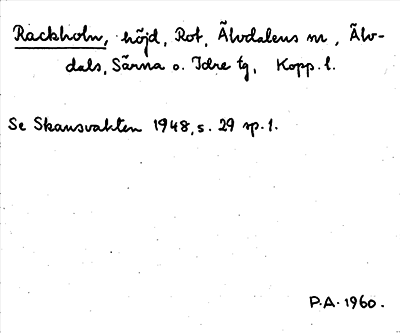 Rackholn, höjd, Rot, Älvdalens sn, Älv-
dals, Särna o. Idre tg, Kopp. l.
Se Skansvakten 1948, s. 29 sp. 1.
P.A. 1960.